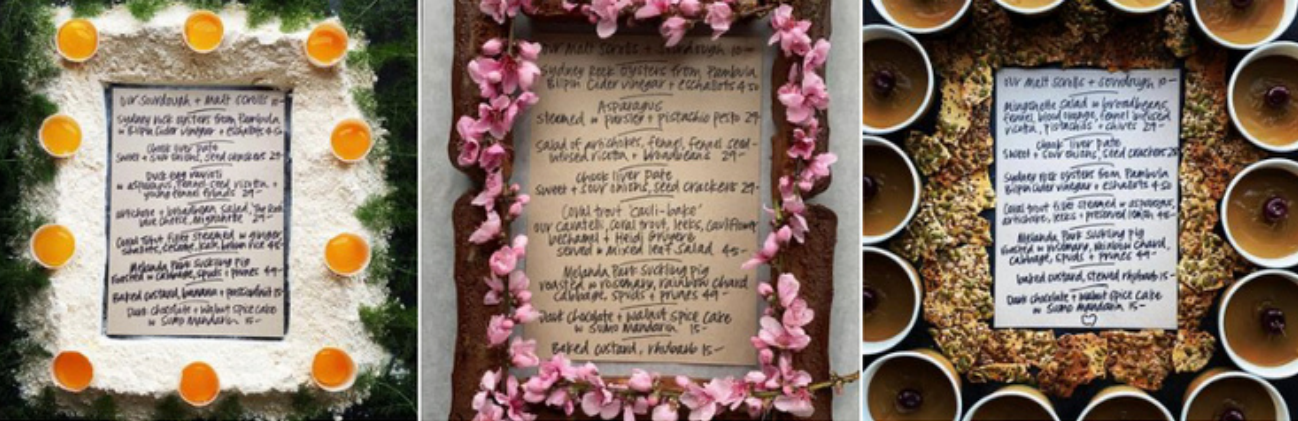 our sourdough + malt scrolls 10-
Sydney rock oysters from Pambula
w Bilpin Cider vinegar + eschallots 4.50
Chook liver pate
Sweet + sour onions, seed crackers 29-
Duck egg ravioli
w asparagus, fennel seed ricotta +
young fennel fronds 29-
artichoke + broadbean salad,
blue cheese, vignarotte 29-
Coral Trout fillet steamed w ginger
shallots, sesame, kale, brown rice 45-
Melanda Park suckling pig
roasted w cabbage, spuds + prunes 49-
Baked custard, banana + passionfruit 15-
Dark chocolate + walnut spice cake
w Sumo Mandarin 15-
our malt scrolls + sourdough 10-
Sydney Rock oysters from Pambula
Bilpin Cider vinegar + eschallots 4.50
Asparagus
steamed w parsley + pistachio pesto 29-
Salad of artichokes, fennel, fennel seed-
infused ricotta + broadbeans 29-
Chook liver pate
Sweet + sour onions, seed crackers 29-
Coral trout "cauli-bake"
our cavatelli, coral trout, leeks, cauliflower
bechamel + Heidi Gruyere
served w mixed leaf salad 45-
Melanda Park suckling pig
roasted w rosemary, rainbow chard
cabbage, spuds + prunes 49-
Dark chocolate + walnut spice cake
w Sumo Mandarin 15-
Baked custard, rhubarb 15-
our malt scrolls + sourdough 10-
salad w broadbeans,
fennel, blood orange, fennel infused
ricotta, pistachios + chives 29-
Chook liver pate
Sweet + sour onions, seed crackers 29-
Sydney rock oysters from Pambula
Bilpin Cider vinegar + eschallots 4.50
Coral trout fillet steamed w asparagus,
artichoke, leeks + preserved lemon 45-
Melanda Park suckling pig
roasted w rosemary, rainbow chard,
cabbage, spuds + prunes 49-
baked custard, stewed rhubarb 15-
Dark chocolate + walnut spice cake
w Sumo Mandarin 15-